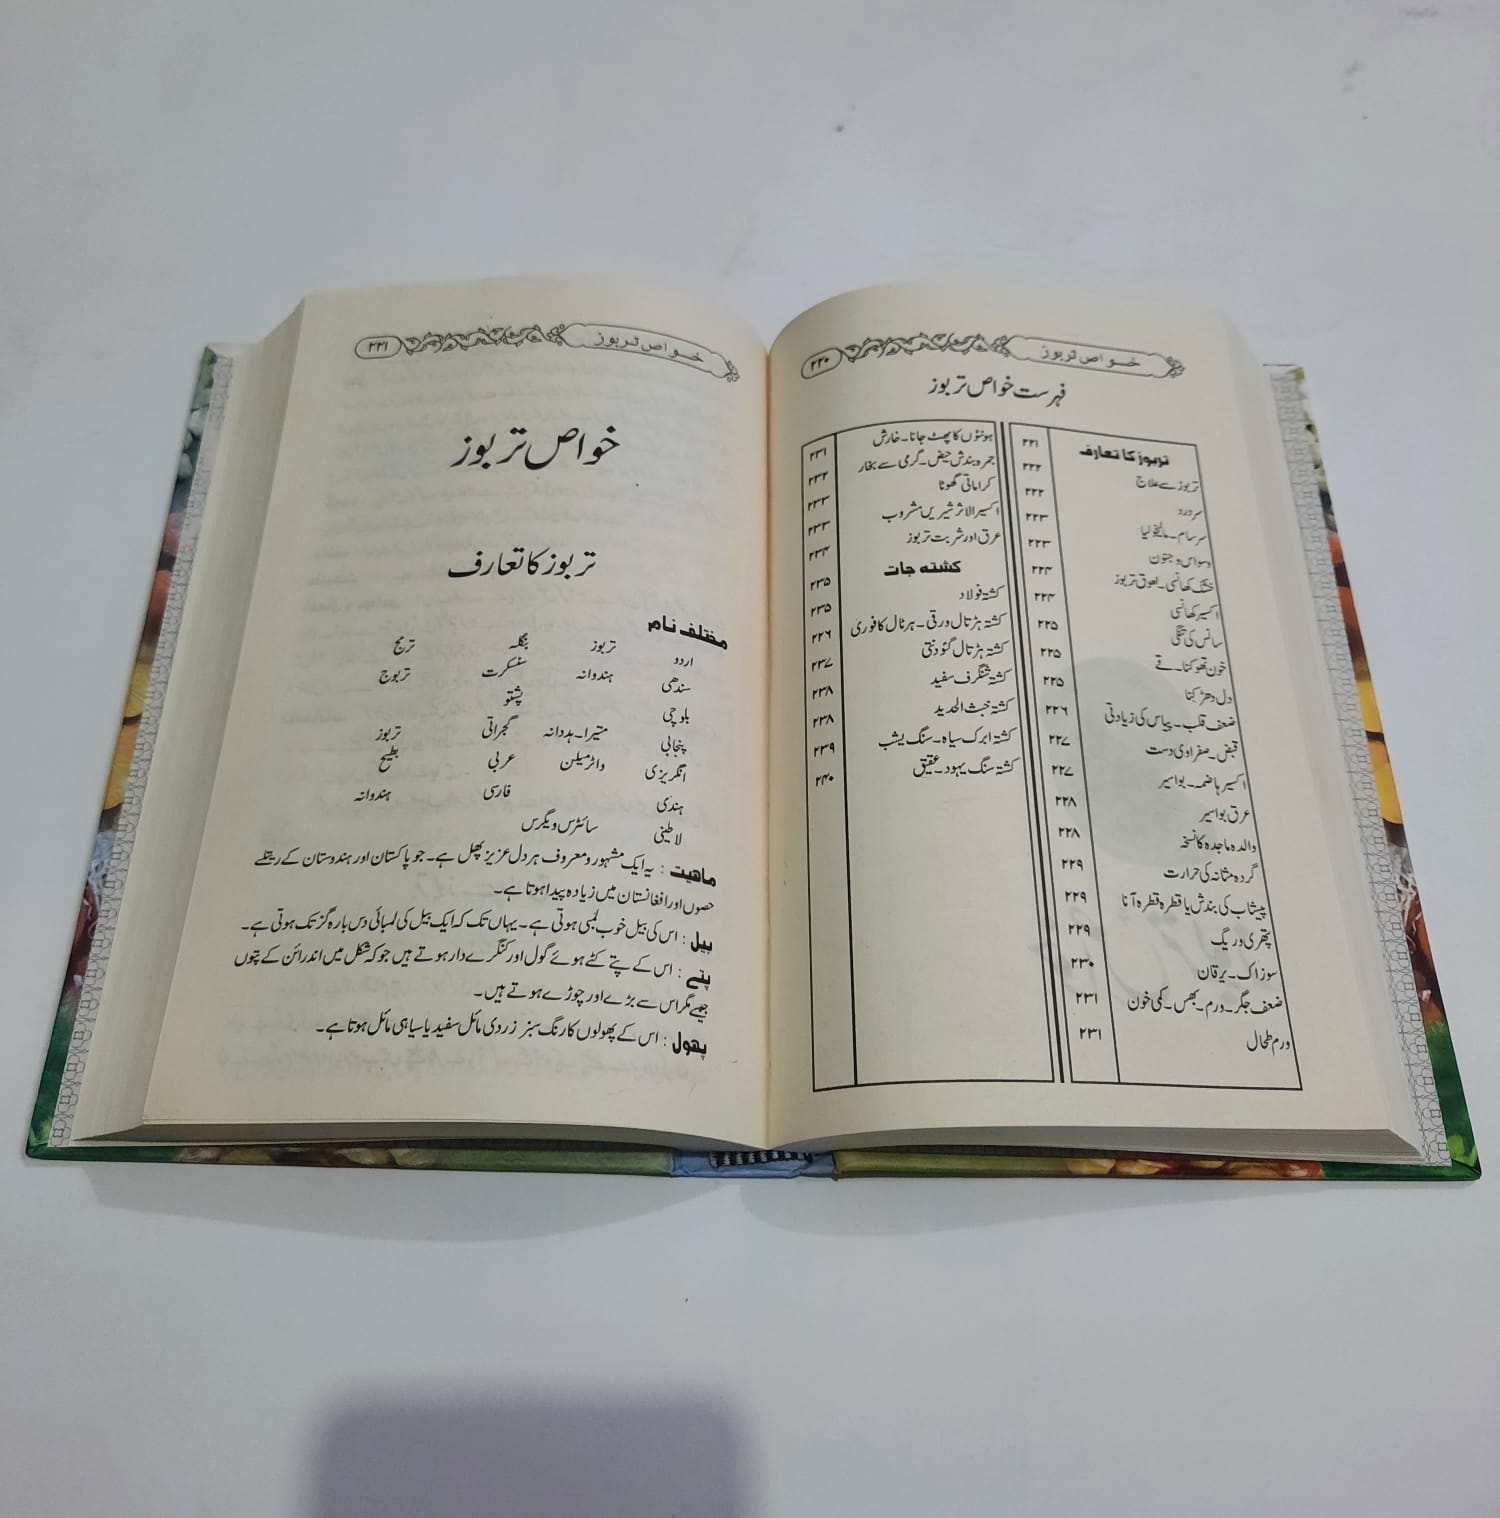 خواص تربوز ۲۲۰
فہرست خواص تربوز
تربوز کا تعارف ۲۲۱
تربوز سے علاج ۲۲۲
سر درد ۲۲۲
سرسام۔ مالیخولیا ۲۲۳
وسواس و جنون ۲۲۳
خشک کھانسی۔ لعوق تربوز ۲۲۴
اکسیر کھانسی ۲۲۴
سانس کی تنگی ۲۲۵
خون تھوکنا۔ قے ۲۲۵
دل دھڑکنا ۲۲۵
ضعف قلب۔ پیاس کی زیادتی ۲۲۶
قبض۔ صفراوی دست ۲۲۷
اکسیر ہاضمہ۔ بواسیر ۲۲۷
عرق بواسیر ۲۲۸
والدہ ماجدہ کا نسخہ ۲۲۸
گردہ مثانہ کی حرارت ۲۲۹
پیشاب کی بندش یا قطرہ قطرہ آنا ۲۲۹
پتھری و ریگ ۲۲۹
سوزاک۔ یرقان ۲۳۰
ضعف جگر۔ ورم۔ بھس۔ کمی خون ۲۳۱
ورم طحال ۲۳۱
ہونٹوں کا پھٹ جانا۔ خارش ۲۳۱
جمرہ بندش حیض۔ گرمی سے بخار ۲۳۲
کراماتی گھوٹا ۲۳۳
اکسیر الاثر شیریں مشروب ۲۳۳
عرق اور شربت تربوز ۲۳۴
کشتہ جات
کشتہ فولاد ۲۳۵
کشتہ ہڑتال ورقی۔ ہرٹال کافوری ۲۳۵
کشتہ ہڑتال گئودنتی ۲۲۶
کشتہ شنگرف سفید ۲۳۷
کشتہ خبث الحدید ۲۳۸
کشتہ ابرک سیاہ۔ سنگ یشب ۲۳۸
کشتہ سنگ یہود۔ عقیق ۲۳۹
۲۴۰
خواص تربوز ۲۲۱
خواص تربوز
تربوز کا تعارف
مختلف نام
اردو تربوز بنگلہ ترمج
سندھی ہندوانہ سنسکرت تربوج
بلوچی پشتو
پنجابی متیرا۔ ہدوانہ گجراتی تربوز
انگریزی واٹرمیلن عربی بطیخ
ہندی فارسی ہندوانہ
لاطینی سائٹرس ویگرس
ماھیت : یہ ایک مشہور و معروف ہر دل عزیز پھل ہے۔ جو پاکستان اور ہندوستان کے ریتلے
حصوں اور افغانستان میں زیادہ پیدا ہوتا ہے۔
بیل : اس کی بیل خوب لمبی ہوتی ہے۔ یہاں تک کہ ایک بیل کی لمبائی دس بارہ گز تک ہوتی ہے۔
پتے : اس کے پتے کٹے ہوئے گول اور کنگرے دار ہوتے ہیں جو کہ شکل میں اندرائن کے پتوں
جیسے مگر اس سے بڑے اور چوڑے ہوتے ہیں۔
پھول : اس کے پھولوں کا رنگ سبز زردی مائل سفید یا سیاہی مائل ہوتا ہے۔